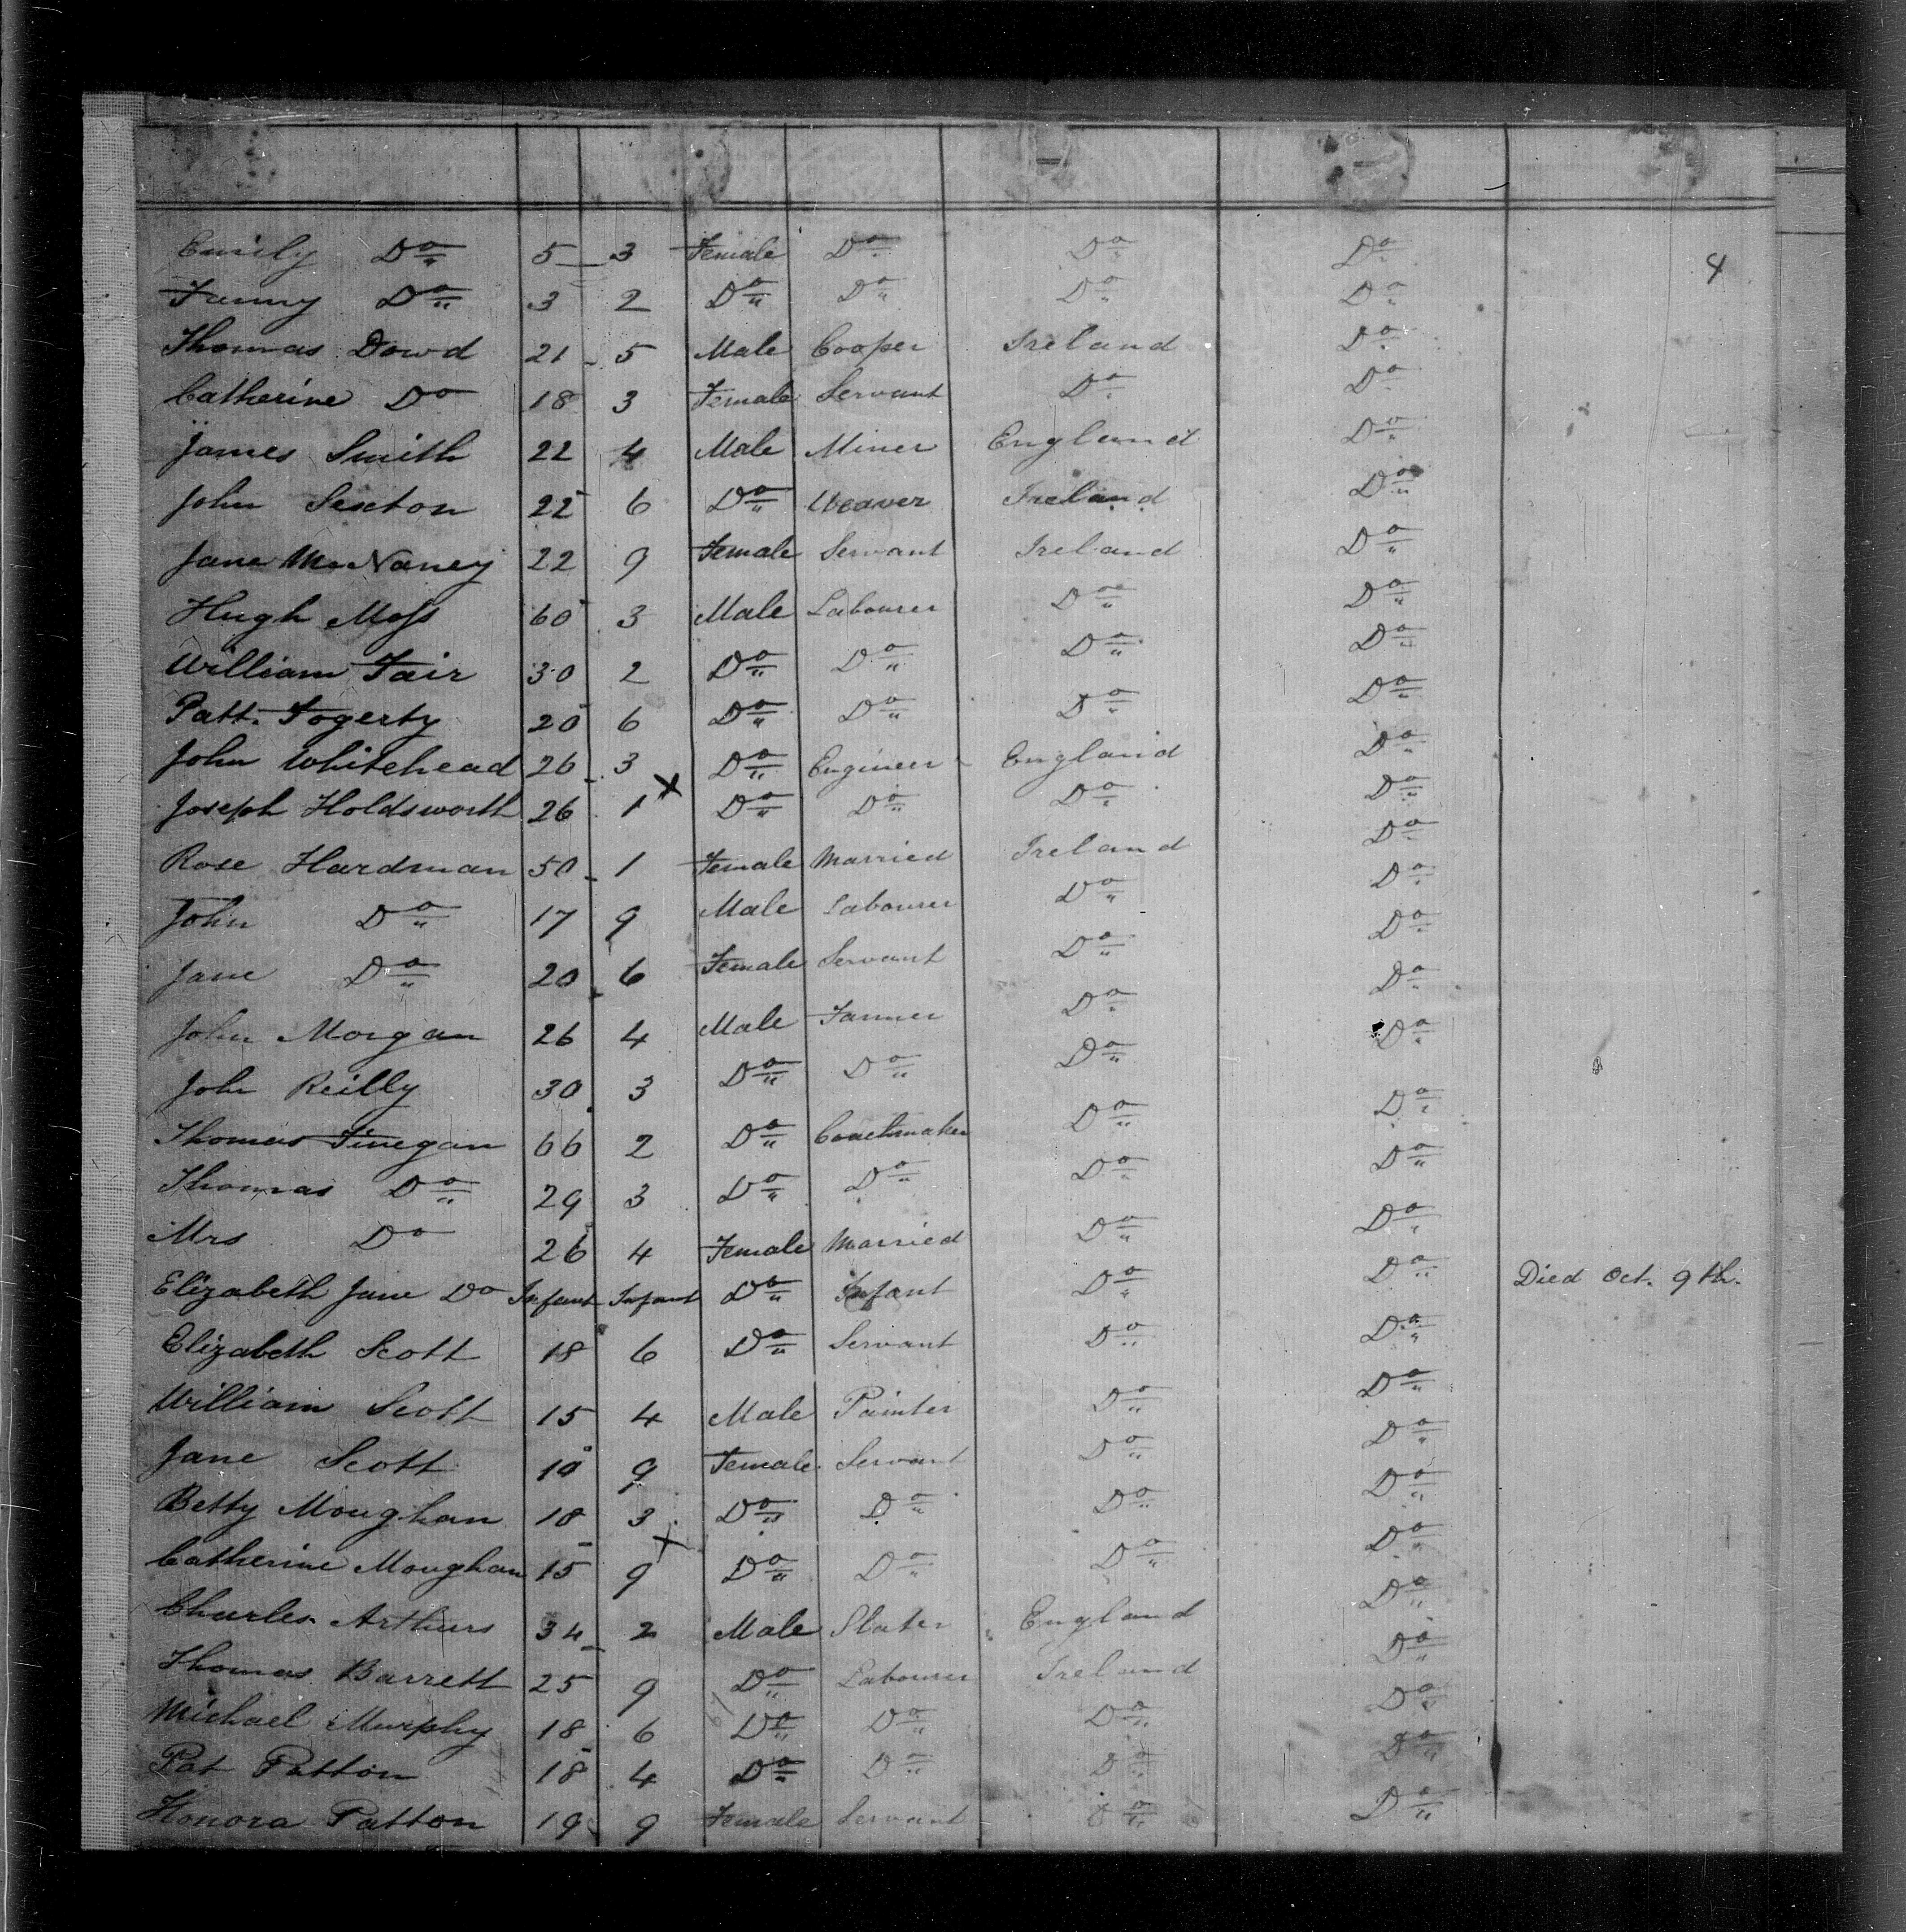 4
Emily Do 5 3 Female Do Do Do
Fanny Do 3 2 Do Do Do Do
Thomas Dowd 21 5 Male Cooper Ireland Do
Catherine Do 18 3 Female Servant Do Do
James Smith 22 4 Male Miner England Do
John Sexton 22 6 Do Weaver Ireland Do
Jane McNaney 22 9 Female Servant Ireland Do
Hugh Moss 60 3 Male Labourer Do Do
William Fair 30 2 Do Do Do Do
Patt. Fogerty 20 6 Do Do Do Do
John Whitehead 26 3 Do Engineer England Do
Joseph Holdsworth 26 1 X Do Do Do Do
Rose Hardman 50 1 Female Married Ireland Do
John Do 17 9 Male Labourer Do Do
Jane Do 20 6 Female Servant Do Do
John Morgan 26 4 Male Farmer Do Do
John Reilly 30 3 Do Do Do Do
Thomas Finegan 66 2 Do Coachmaker Do Do
Thomas Do 29 3 Do Do Do Do
Mrs Do 26 4 Female Married Do Do
Elizabeth Jane Do Infant Infant Do Infant Do Do Died Oct. 9th.
Elizabeth Scott 18 6 Do Servant Do Do
William Scott 15 4 Male Painter Do Do
Jane Scott 10 9 Female Servant Do Do
Betty Moughan 18 3 Do Do Do Do
Catherine Moughan 15 9 X Do Do Do Do
Charles Arthurs 34 2 Male Slater England Do
Thomas Barrett 25 9 Do Labourer Ireland Do
Michael Murphy 18 6 Do Do Do Do
Pat Patton 18 4 Do Do Do Do
Honora Patton 19 9 Female Servant Do Do